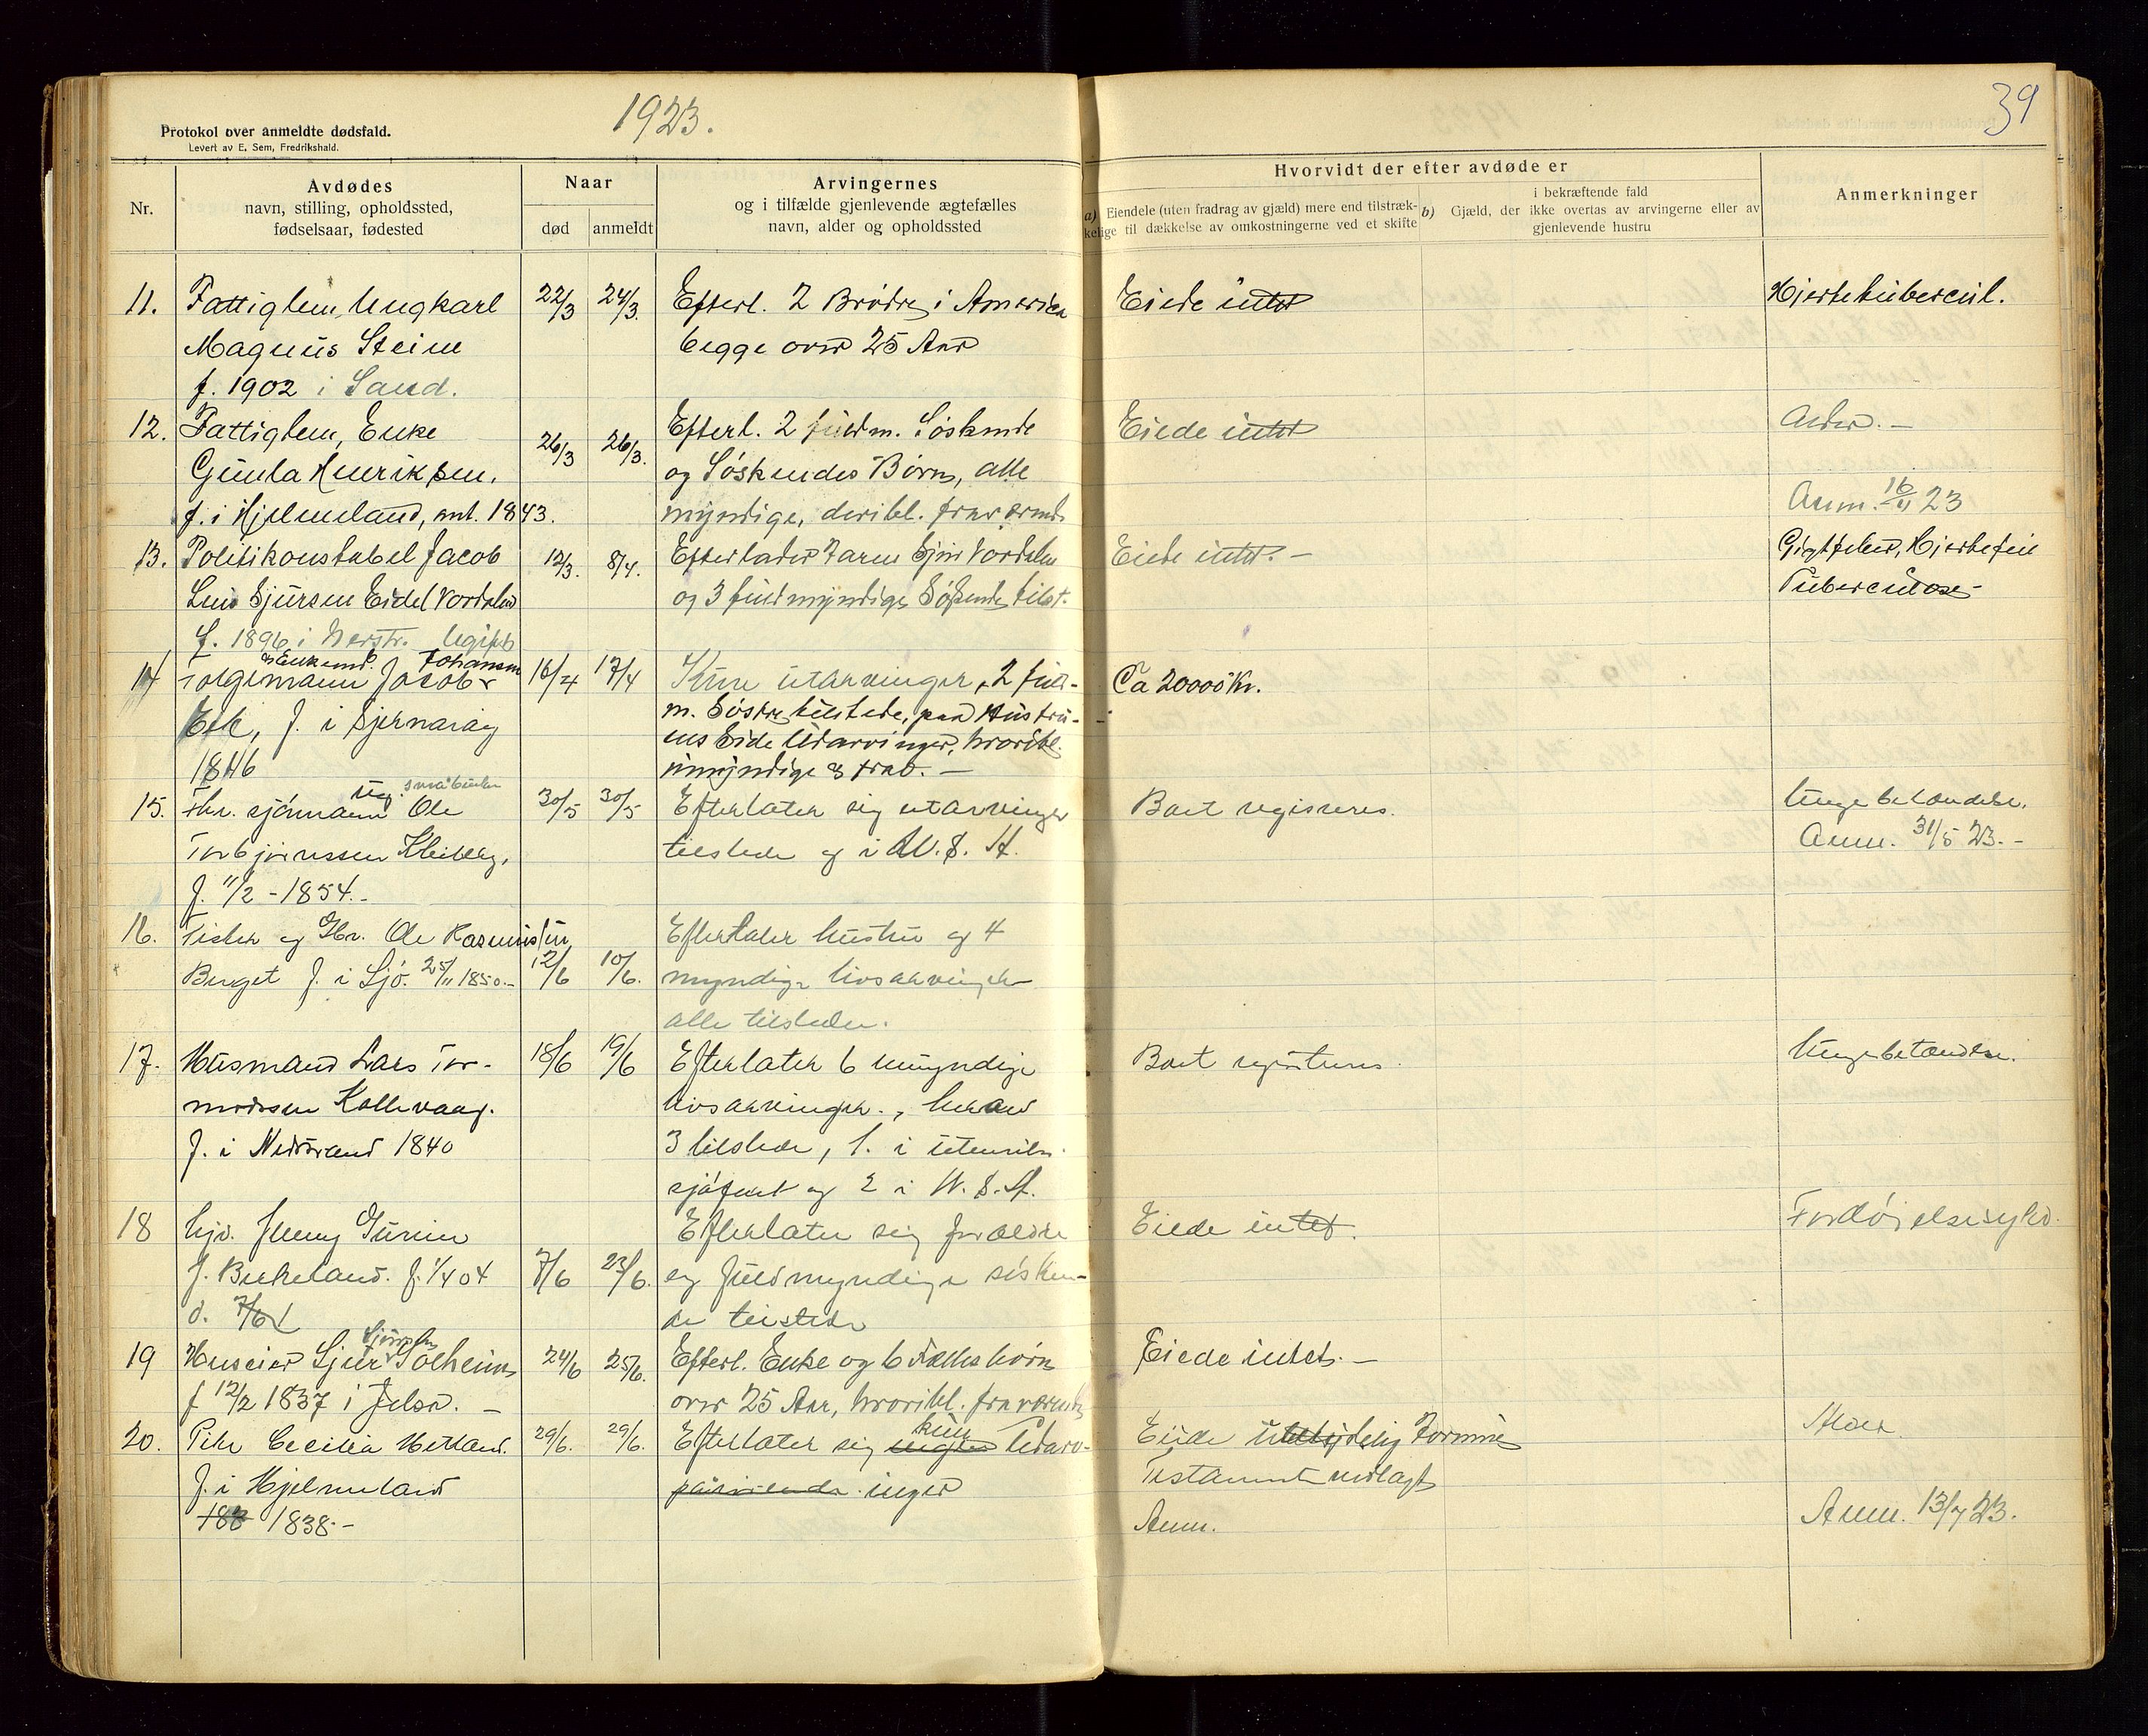 1923.
39
Protokol over anmeldte dødsfald.
Levert av E. Sem, Fredrikshald.
Nr.
Avdødes
navn, stilling, opholdssted,
fødselsaar, fødested
Naar
død
anmeldt
Arvingernes
og i tilfælde gjenlevende ægtefælles
navn, alder og opholdssted
Hvorvidt der efter avdøde er
a) Eiendele (uten fradrag av gjæld) mere end tilstræk-
kelige til dækkelse av omkostningerne ved et skifte
i bekræftende fald
b) Gjæld, der ikke overtas av arvingerne eller av
gjenlevende hustru
Anmerkninger
11. Fattiglem, Ungkarl 22/3 24/3. Efterl. 2 Brødre i America Eiede intet Hjertetubercul.
Magnus Steine begge over 25 Aar
f. 1902 i Sand.
12. Fattiglem, Enke 26/3 26/3. Efterl. 2 fuldm. Søskende Eiede intet Alder. -
Gunla Henriksen, og Søskendes Børn, alle
f. i Hjelmeland, ant. 1843. myndige, deribl. fraværende Anm. 16/11 23
13. Politikonstabel Jacob 12/3. 8/4. Efterlader Faren Sjur Vordalen Eiede intet. - Gigtfeber, Hjertefeil
Sjursen Eidel Vordalen og 3 fuldmyndige Søskende tilst. Tuberculose
f. 1896 i Nerstr. Ugift
14 Følgemann & Enkemd. Jacob Johansen 16/4 17/4 Kun utarvinger, 2 fuld- Ca 20000 Kr.
Eik, f. i Sjernarøy m. Søstre tilstede, paa Hustru-
1846 ens Side Udarvinger, hvoribl.
umyndige & frav. -
15. Fhr. sjømann ug. småbruker Ole 30/5 30/5 Efterlater sig utarvinger Boet registreres. Lungebetændelse.
Torbjørnssen Kleiberg, tilstede og i U. S. A. Anm. 31/5 23. -
f. 11/2 - 1854. -
16. Fisker og Gbr. Ole Rasmussen Efterlater hustru og 4
Berget f. i Sjø. 25/11 1850. - 12/6 10/6. myndige livsarvinger
alle tilstede.
17. Husmand Lars Tor- 18/6 19/6 Efterlater 6 myndige Boet registreres. Lungebetændelse.
modsen Kollevaag. livsarvinger., herav
f. i Nedstrand 1840 3 tilstede, 1. i utenriks
sjøfart og 2 i U. S. A.
18 Jenny Gurine Efterlater sig forældre Eiede intet. Fordøielsessykd.
J. Birkeland. f. 1/4 04 7/6 23/6. og fuldmyndige søsken-
d. 7/6 de tilstede
19 Huseier Sjur Sjursen Solheim 24/6 25/6. Efterl. Enke og 6 Fællesbørn Eiede intet. -
f 12/2 1837 i Jelsø. - over 25 Aar, hvoribl. fraværende
20. Pike Cecilia Hetland. 29/6. 29/6. Efterlater sig kun Udarv- Eiede ubetydelig Formue Alder
f. i Hjelmeland inger Testament vedlagt
183 1838. - Anm. Anm. 13/7 23.